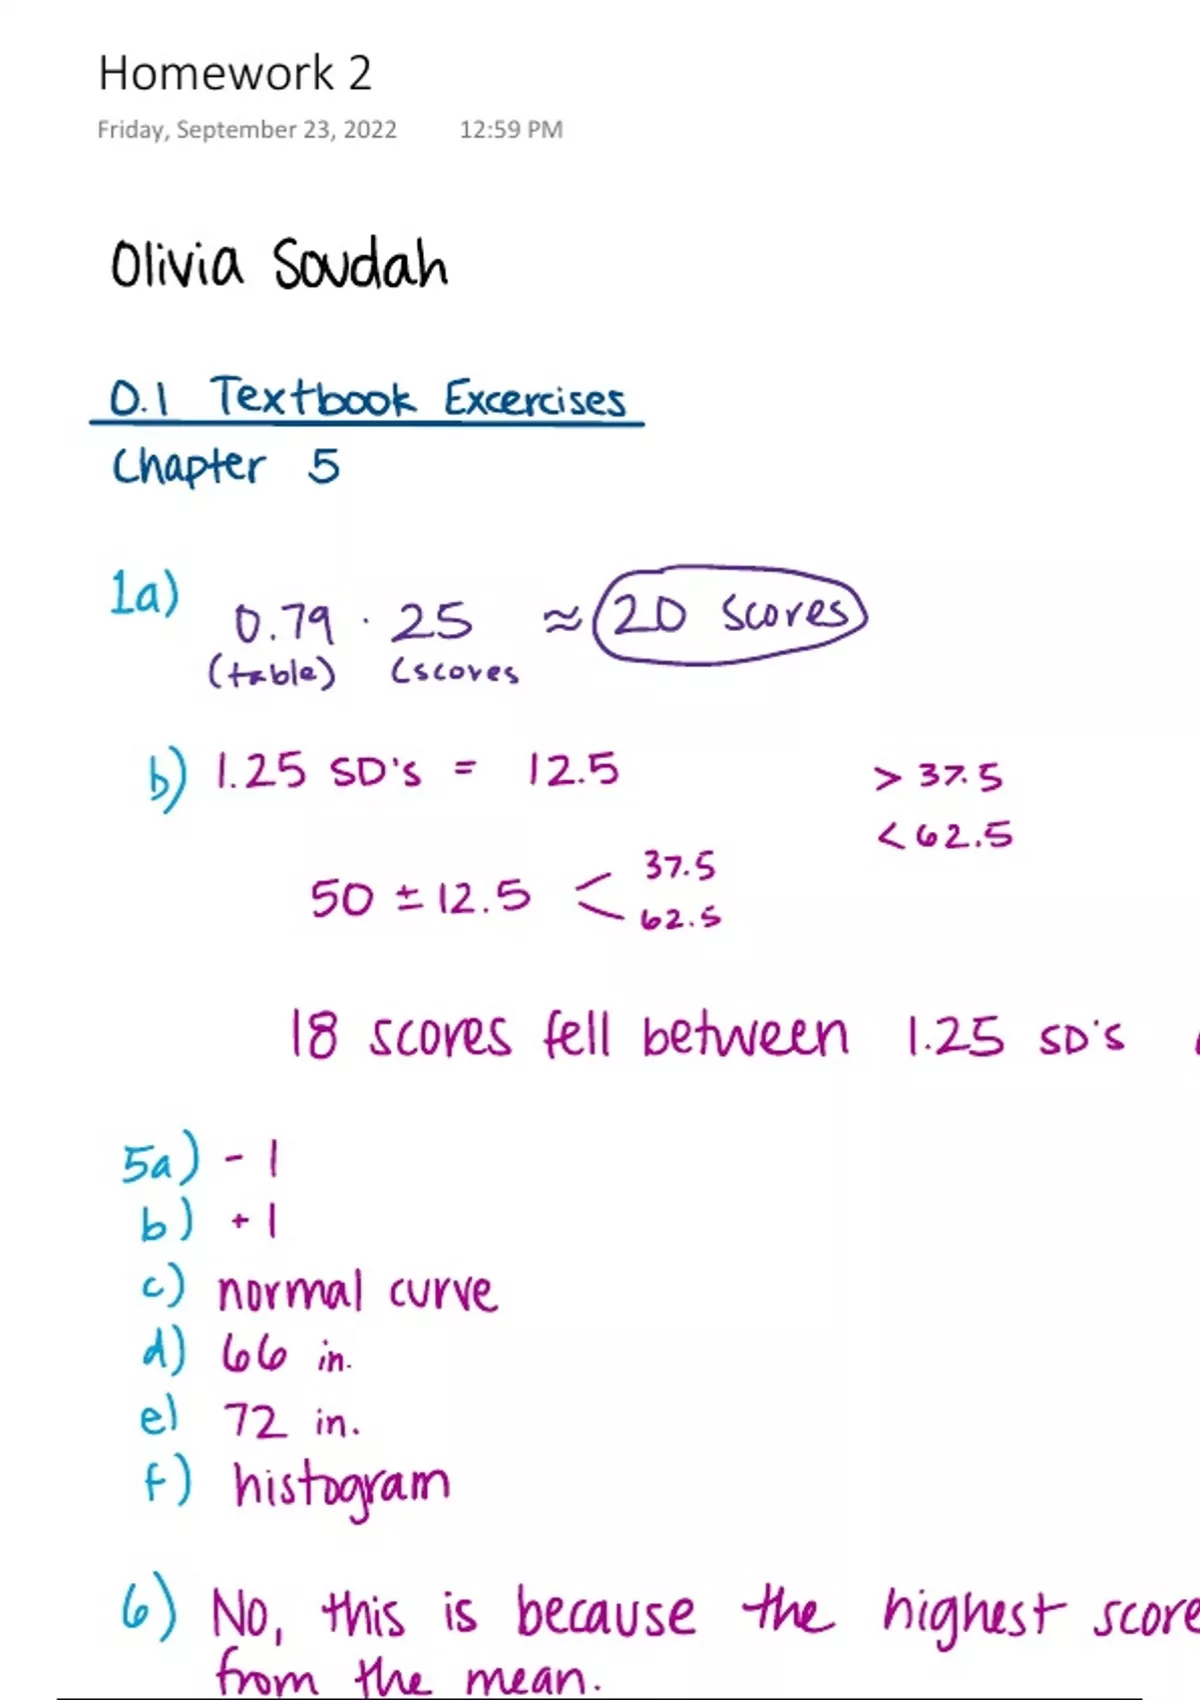 Homework 2
Friday, September 23, 2022 12:59 PM
Olivia Soudah
0.1 Textbook Excercises
Chapter 5
1a) 0.79 · 25 ≈ 20 scores
(table) (scores
b) 1.25 SD's = 12.5 > 37.5
< 62.5
50 ± 12.5 < 37.5
62.5
18 scores fell between 1.25 SD's
5a) - 1
b) + 1
c) normal curve
d) 66 in.
e) 72 in.
f) histogram
6) No, this is because the highest score
from the mean.